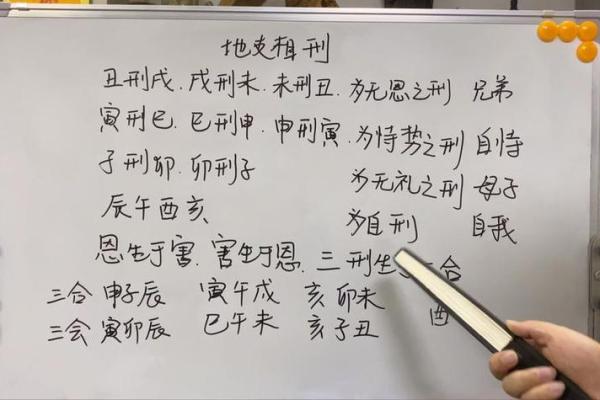 地支相刑
丑刑戌.戌刑未.未刑丑.为无恩之刑 兄弟
寅刑巳.巳刑申.申刑寅.为恃势之刑 自恃
子刑卯.卯刑子 为无礼之刑 母子
辰午酉亥 为自刑 自我
恩生于害.害生于恩.三刑生于三合
三合 申子辰 寅午戌 亥卯未
三会 寅卯辰 巳午未 亥子丑 酉